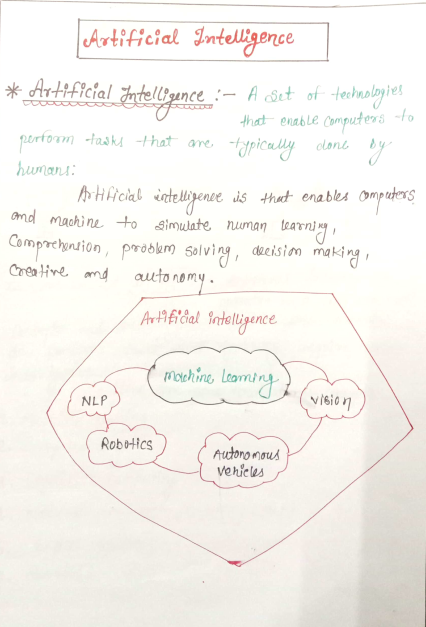 Artificial Intelligence
* Artificial Intelligence :- A set of technologies
that enable computers to
perform tasks that are typically done by
humans:
Artificial intelligence is that enables computers
and machine to simulate human learning,
Comprehension, problem solving, decision making,
Creative and autonomy.
Artificial intelligence
Machine Learning
NLP
Vision
Robotics
Autonomous
Vehicles